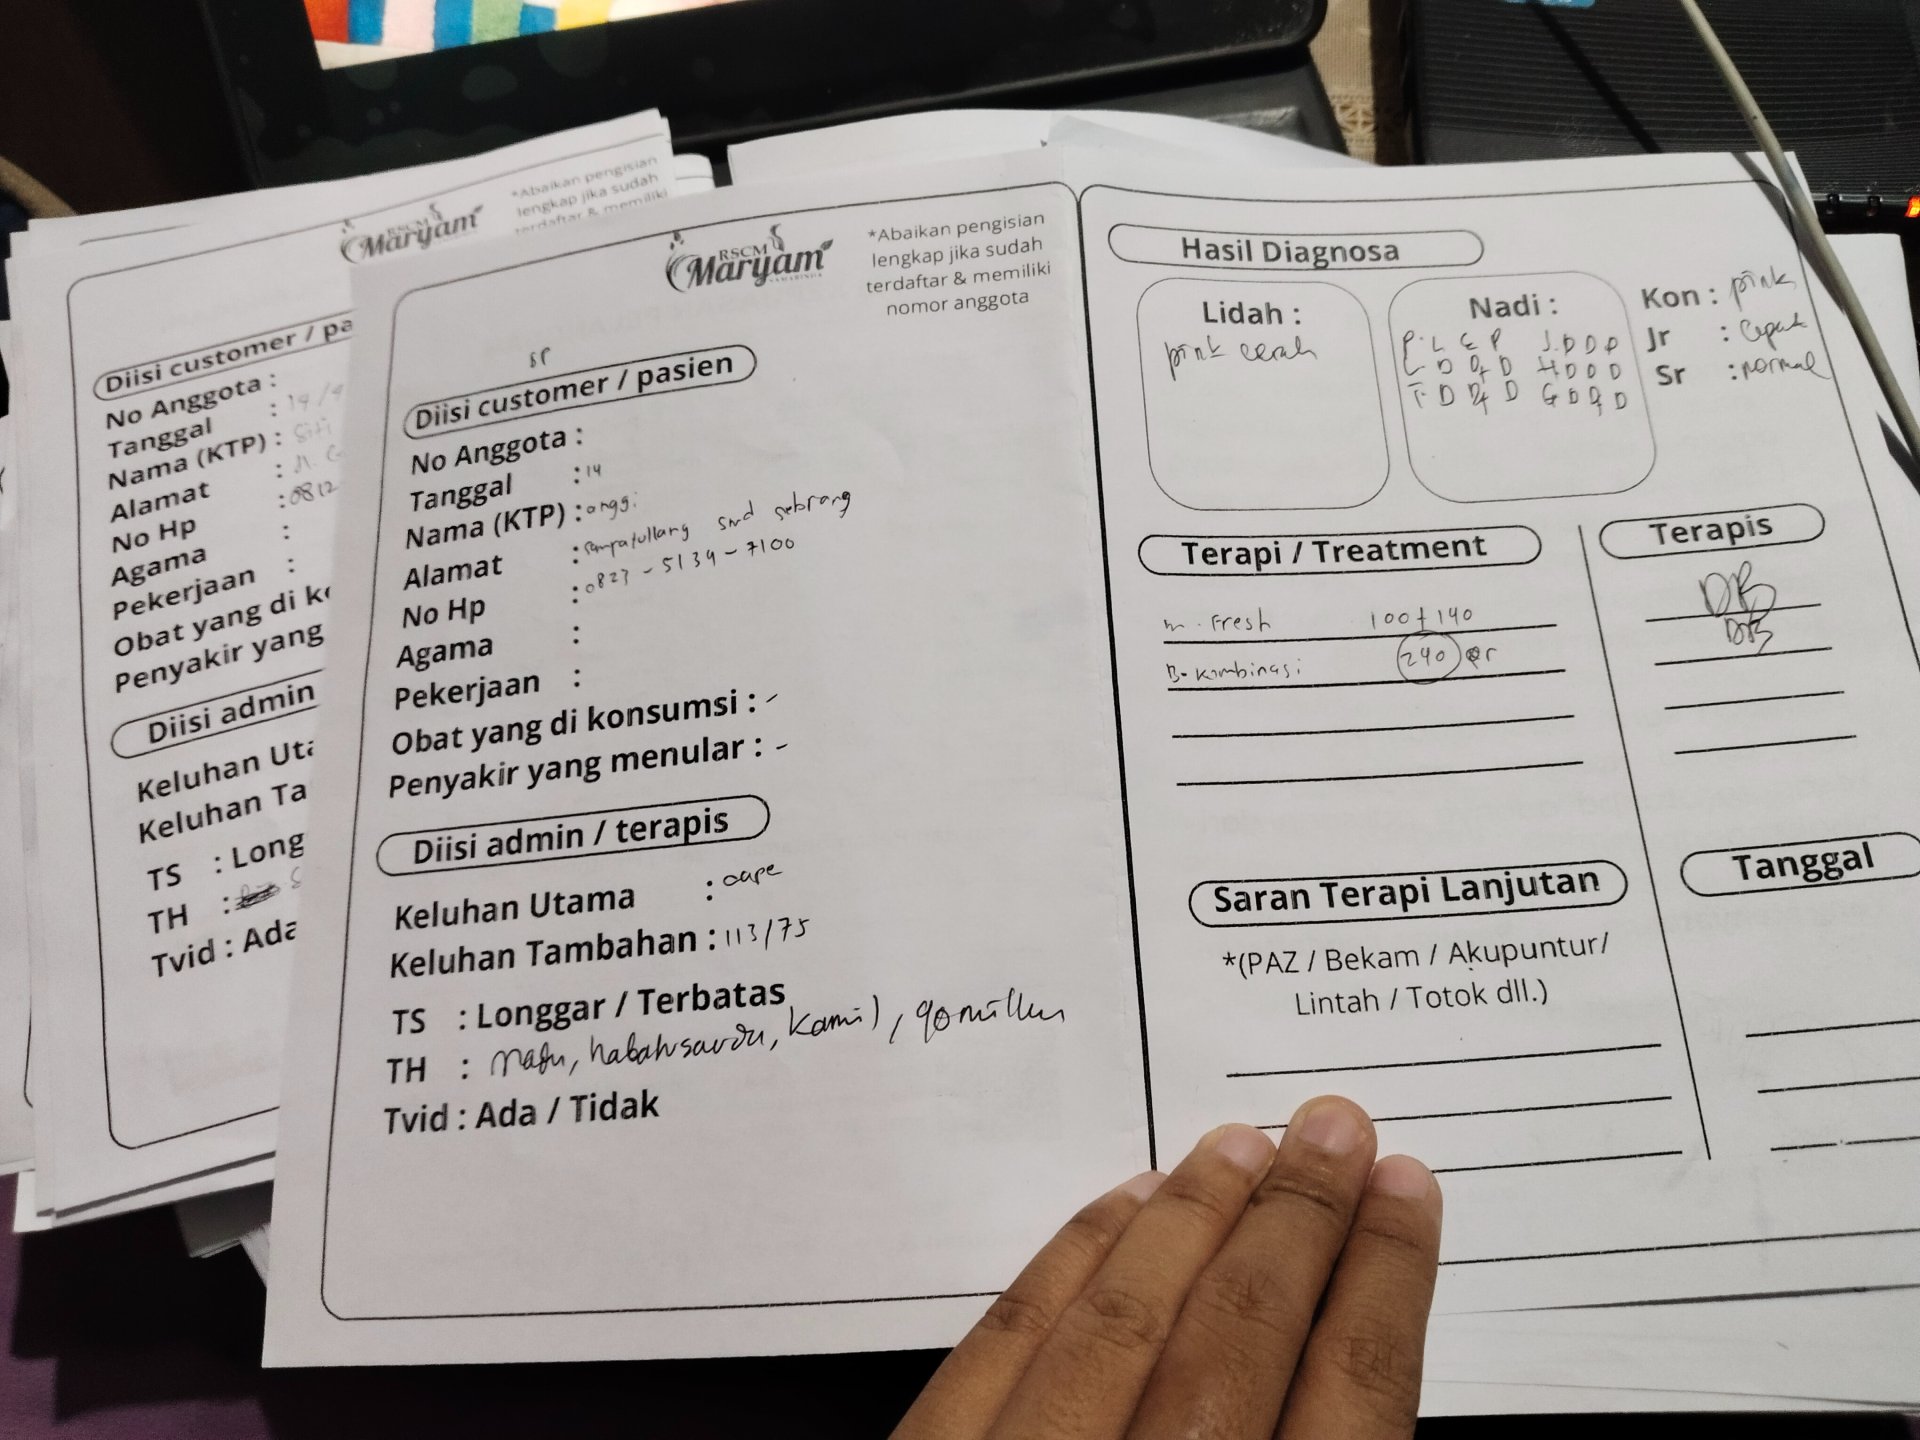 *Abaikan pengisian
lengkap jika sudah
terdaftar & memiliki
RSCM
Maryam
Diisi customer / pa
No Anggota :
Tanggal : 14/4
Nama (KTP) : Siti
Alamat :
No Hp : 0812
Agama :
Pekerjaan :
Obat yang di k
Penyakir yang
Diisi admin
Keluhan Uta
Keluhan Ta
TS : Long
TH :
Tvid : Ada
RSCM
Maryam
SAMARINDA
*Abaikan pengisian
lengkap jika sudah
terdaftar & memiliki
nomor anggota
sr
Diisi customer / pasien
No Anggota :
Tanggal : 14
Nama (KTP) : anggi
Alamat : smd sebrang
No Hp : 0823 - 5139 - 7100
Agama :
Pekerjaan :
Obat yang di konsumsi : -
Penyakir yang menular : -
Diisi admin / terapis
Keluhan Utama : cape
Keluhan Tambahan : 113/75
TS : Longgar / Terbatas
TH : madu, habatusauda, kamil, qomillun
Tvid : Ada / Tidak
Hasil Diagnosa
Lidah :
pink cerah
Nadi :
P. L E P J. D D D
L D D D H D D D
T. D D D G D D D
Kon : pink
Jr : cepat
Sr : normal
Terapi / Treatment
m. Fresh 100 + 140
B. Kombinasi 240 qr
Terapis
DB
DB
Saran Terapi Lanjutan
*(PAZ / Bekam / Akupuntur/
Lintah / Totok dll.)
Tanggal